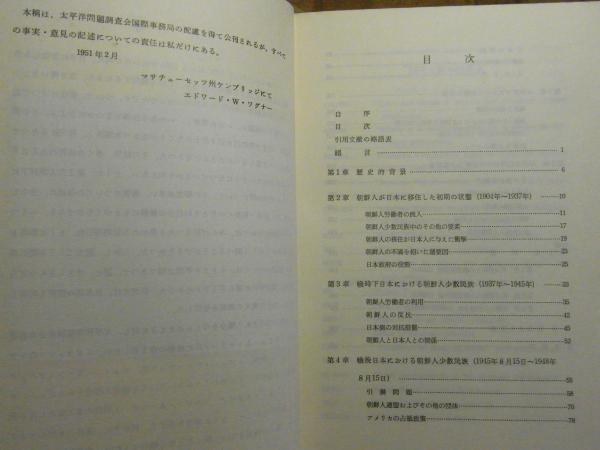 本稿は、太平洋問題調査会国際事務局の配慮を得て公刊されるが、すべて
の事実・意見の記述についての責任は私だけにある。
1951年2月
マサチューセッツ州ケンブリッジにて
エドワード・W・ワグナー
目 次
口 序
目 次
引用文献の略語表
緒 言 1
第1章 歴史的背景 6
第2章 朝鮮人が日本に移住した初期の状態 (1904年〜1937年) 10
朝鮮人労働者の流入 11
朝鮮人少数民族中のその他の要素 17
朝鮮人の移住が日本人に与えた衝撃 19
朝鮮人の不満を招いた諸要因 23
日本政府の役割 25
第3章 戦時下日本における朝鮮人少数民族 (1937年〜1945年) 33
朝鮮人労働者の利用 35
朝鮮人の反抗 42
日本側の対抗措置 45
朝鮮人と日本人との関係 52
第4章 戦後日本における朝鮮人少数民族 (1945年8月15日〜1948年
8月15日) 55
引揚問題 58
朝鮮人連盟およびその他の団体 70
アメリカの占領政策 78